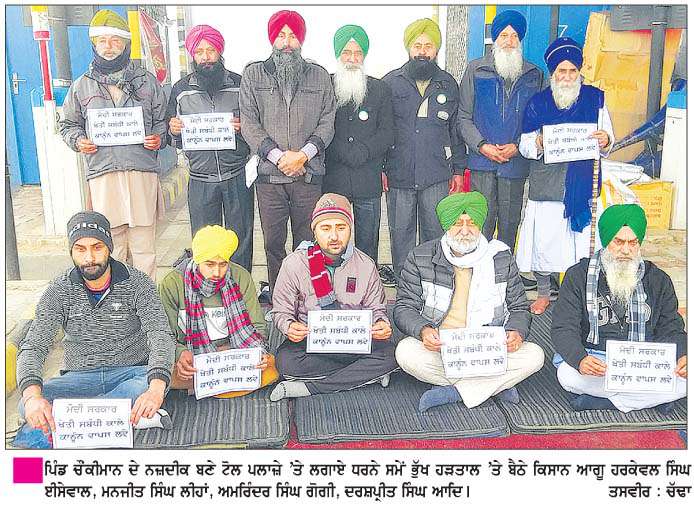 ਮੋਦੀ ਸਰਕਾਰ
ਖੇਤੀ ਸਬੰਧੀ ਕਾਲੇ
ਕਾਨੂੰਨ ਵਾਪਸ ਲਵੇ
ਮੋਦੀ ਸਰਕਾਰ
ਖੇਤੀ ਸਬੰਧੀ ਕਾਲੇ
ਕਾਨੂੰਨ ਵਾਪਸ ਲਵੇ
ਮੋਦੀ ਸਰਕਾਰ
ਖੇਤੀ ਸਬੰਧੀ ਕਾਲੇ
ਕਾਨੂੰਨ ਵਾਪਸ ਲਵੇ
ਮੋਦੀ ਸਰਕਾਰ
ਖੇਤੀ ਸਬੰਧੀ ਕਾਲੇ
ਕਾਨੂੰਨ ਵਾਪਸ ਲਵੇ
ਮੋਦੀ ਸਰਕਾਰ
ਖੇਤੀ ਸਬੰਧੀ ਕਾਲੇ
ਕਾਨੂੰਨ ਵਾਪਸ ਲਵੇ
ਮੋਦੀ ਸਰਕਾਰ
ਖੇਤੀ ਸਬੰਧੀ ਕਾਲੇ
ਕਾਨੂੰਨ ਵਾਪਸ ਲਵੇ
ਮੋਦੀ ਸਰਕਾਰ
ਖੇਤੀ ਸਬੰਧੀ ਕਾਲੇ
ਕਾਨੂੰਨ ਵਾਪਸ ਲਵੇ
ਮੋਦੀ ਸਰਕਾਰ
ਖੇਤੀ ਸਬੰਧੀ ਕਾਲੇ
ਕਾਨੂੰਨ ਵਾਪਸ ਲਵੇ
ਪਿੰਡ ਚੌਕੀਮਾਨ ਦੇ ਨਜ਼ਦੀਕ ਬਣੇ ਟੋਲ ਪਲਾਜ਼ੇ 'ਤੇ ਲਗਾਏ ਧਰਨੇ ਸਮੇਂ ਭੁੱਖ ਹੜਤਾਲ 'ਤੇ ਬੈਠੇ ਕਿਸਾਨ ਆਗੂ ਹਰਕੇਵਲ ਸਿੰਘ
ਈਸੇਵਾਲ, ਮਨਜੀਤ ਸਿੰਘ ਲੀਹਾਂ, ਅਮਰਿੰਦਰ ਸਿੰਘ ਗੋਗੀ, ਦਰਸ਼ਪ੍ਰੀਤ ਸਿੰਘ ਆਦਿ। ਤਸਵੀਰ : ਚੱਢਾ